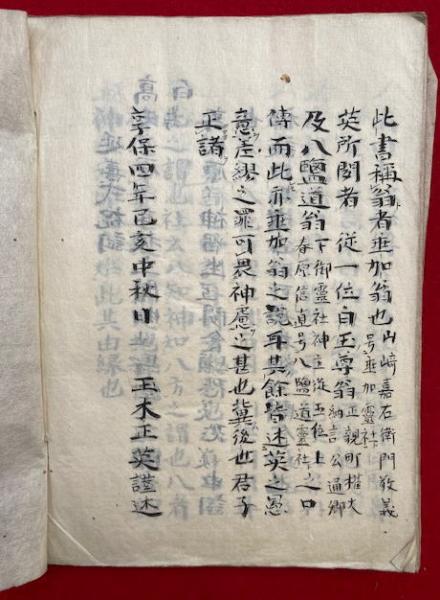 此書稱翁者垂加翁也山崎嘉右衛門敬義号垂加霊社
英所聞者從一位白玉尊翁正親町權大納言公通卿
及八鹽道翁下御霊社神主從五位上春原信直号八鹽道霊社之口
傳而此亦垂加翁之說耳其餘皆述英之愚
意差繆之罪可畏神慮之甚也冀後世君子
正諸
享保四年己亥中秋日 玉木正英謹述